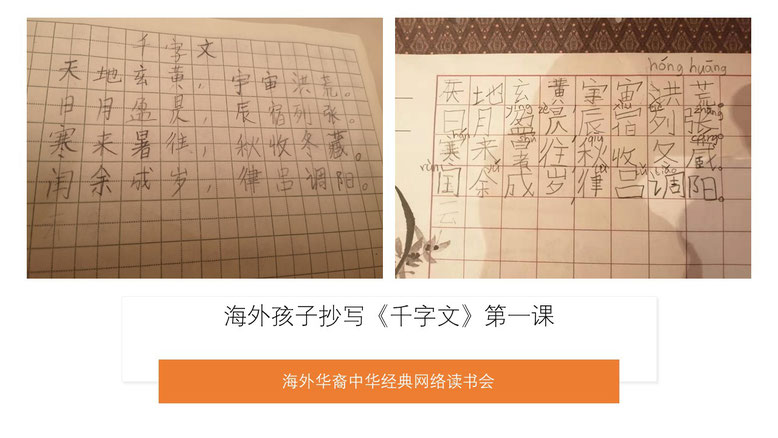 千字文
天地玄黄，宇宙洪荒。
日月盈昃，辰宿列张。
寒来暑往，秋收冬藏。
闰余成岁，律吕调阳。
hóng huāng
天地玄黄宇宙洪荒。
日月盈昃辰宿列张。
寒来暑往秋收冬藏。
rùn yú
闰余成岁，律吕调阳。
云
海外孩子抄写《千字文》第一课
海外华裔中华经典网络读书会